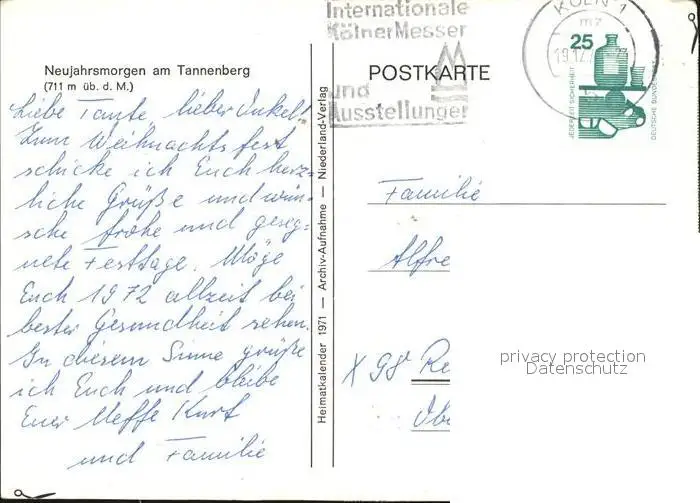 Neujahrsmorgen am Tannenberg
(711 m üb. d. M.)
Liebe Tante, lieber Onkel!
Zum Weihnachtsfest
schicke ich Euch herz-
liche Grüße und wün-
sche frohe und geseg-
nete Festtage. Möge
Euch 1972 allzeit bei
bester Gesundheit sehen.
In diesem Sinne grüße
ich Euch und bleibe
Euer Neffe Kurt
und Familie
Heimatkalender 1971 — Archiv-Aufnahme — Niederland-Verlag
Internationale
Kölner Messen
und
Ausstellungen
KÖLN 1
mz
19.12.
POSTKARTE
25
JEDERZEIT SICHERHEIT
DEUTSCHE BUNDESPOST
Familie
Alfre
X 98 Re
Ob
privacy protection
Datenschutz